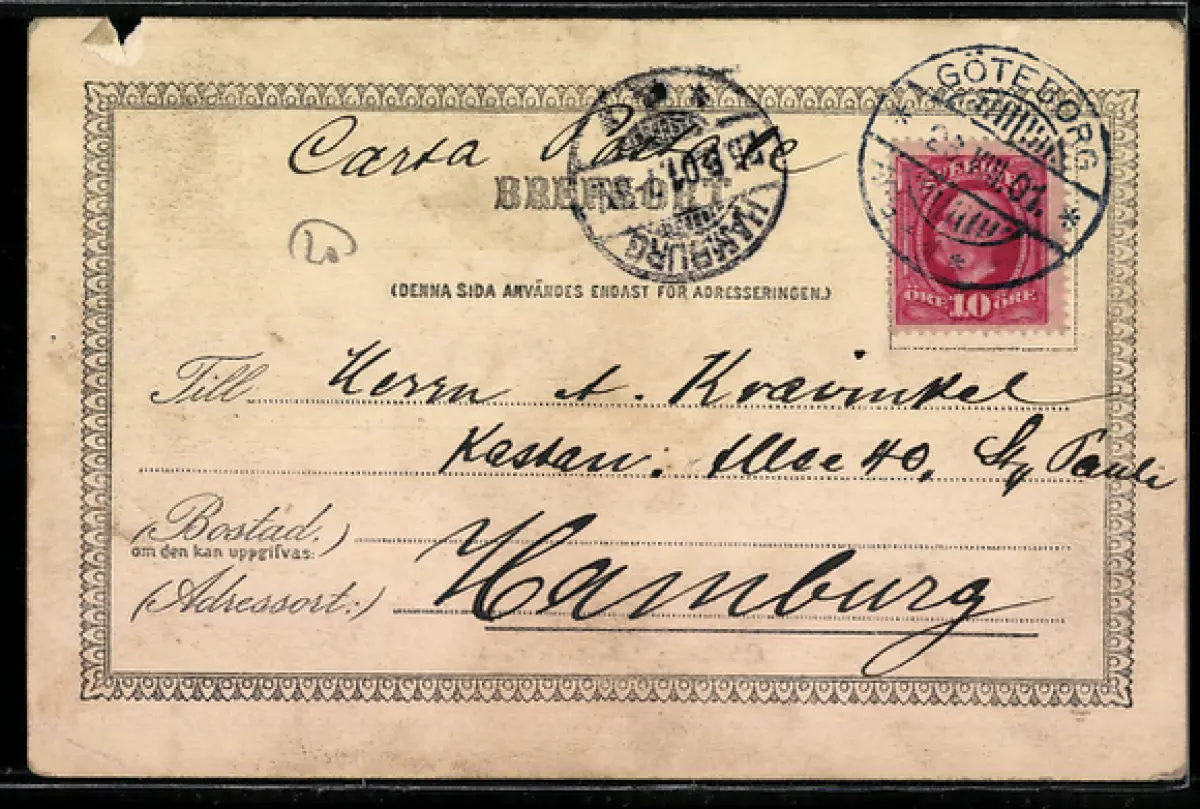 Carta Postale
BREFKORT
(DENNA SIDA ANVÄNDES ENDAST FÖR ADRESSERINGEN.)
20
1. GÖTEBORG
01.
HAMBURG
SVERIGE
ÖRE 10 ÖRE
Till Herrn A. Kravinkel
Kastan. Allee 40, St. Pauli
(Bostad.)
om den kan uppgifvas:
(Adressort:) Hamburg